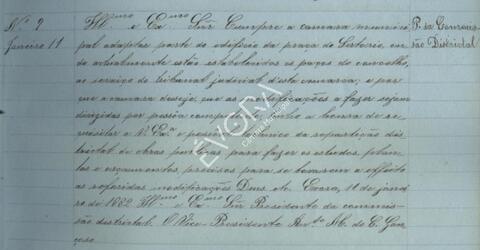 Nº 9 Illmo e Exmo Snr Cumpre a camara munici P. da Commis
Janeiro 11 pal adaptar parte do edificio da praça de Sertorio, on são Districtal
de actualmente estão estabelecidos os paços do concelho,
ao serviço do tribunal judicial d'esta comarca; e por
que a camara deseja que as modificações a fazer sejam
dirigidas por pessoa competente, tenho a honra de re
quisitar a V. Exª o pessoal technico da repartição dis
trictal de obras publicas para fazer os estudos, plan
tas e orçamentos, precisos para se levarem a effeito
as referidas modificações Deus Evora, 11 de janei
ro de 1882 Illmo e Exmo Snr Presidente da commis
são districtal. O Vice-Presidente de C.
ÉVORA
CÂMARA MUNICIPAL